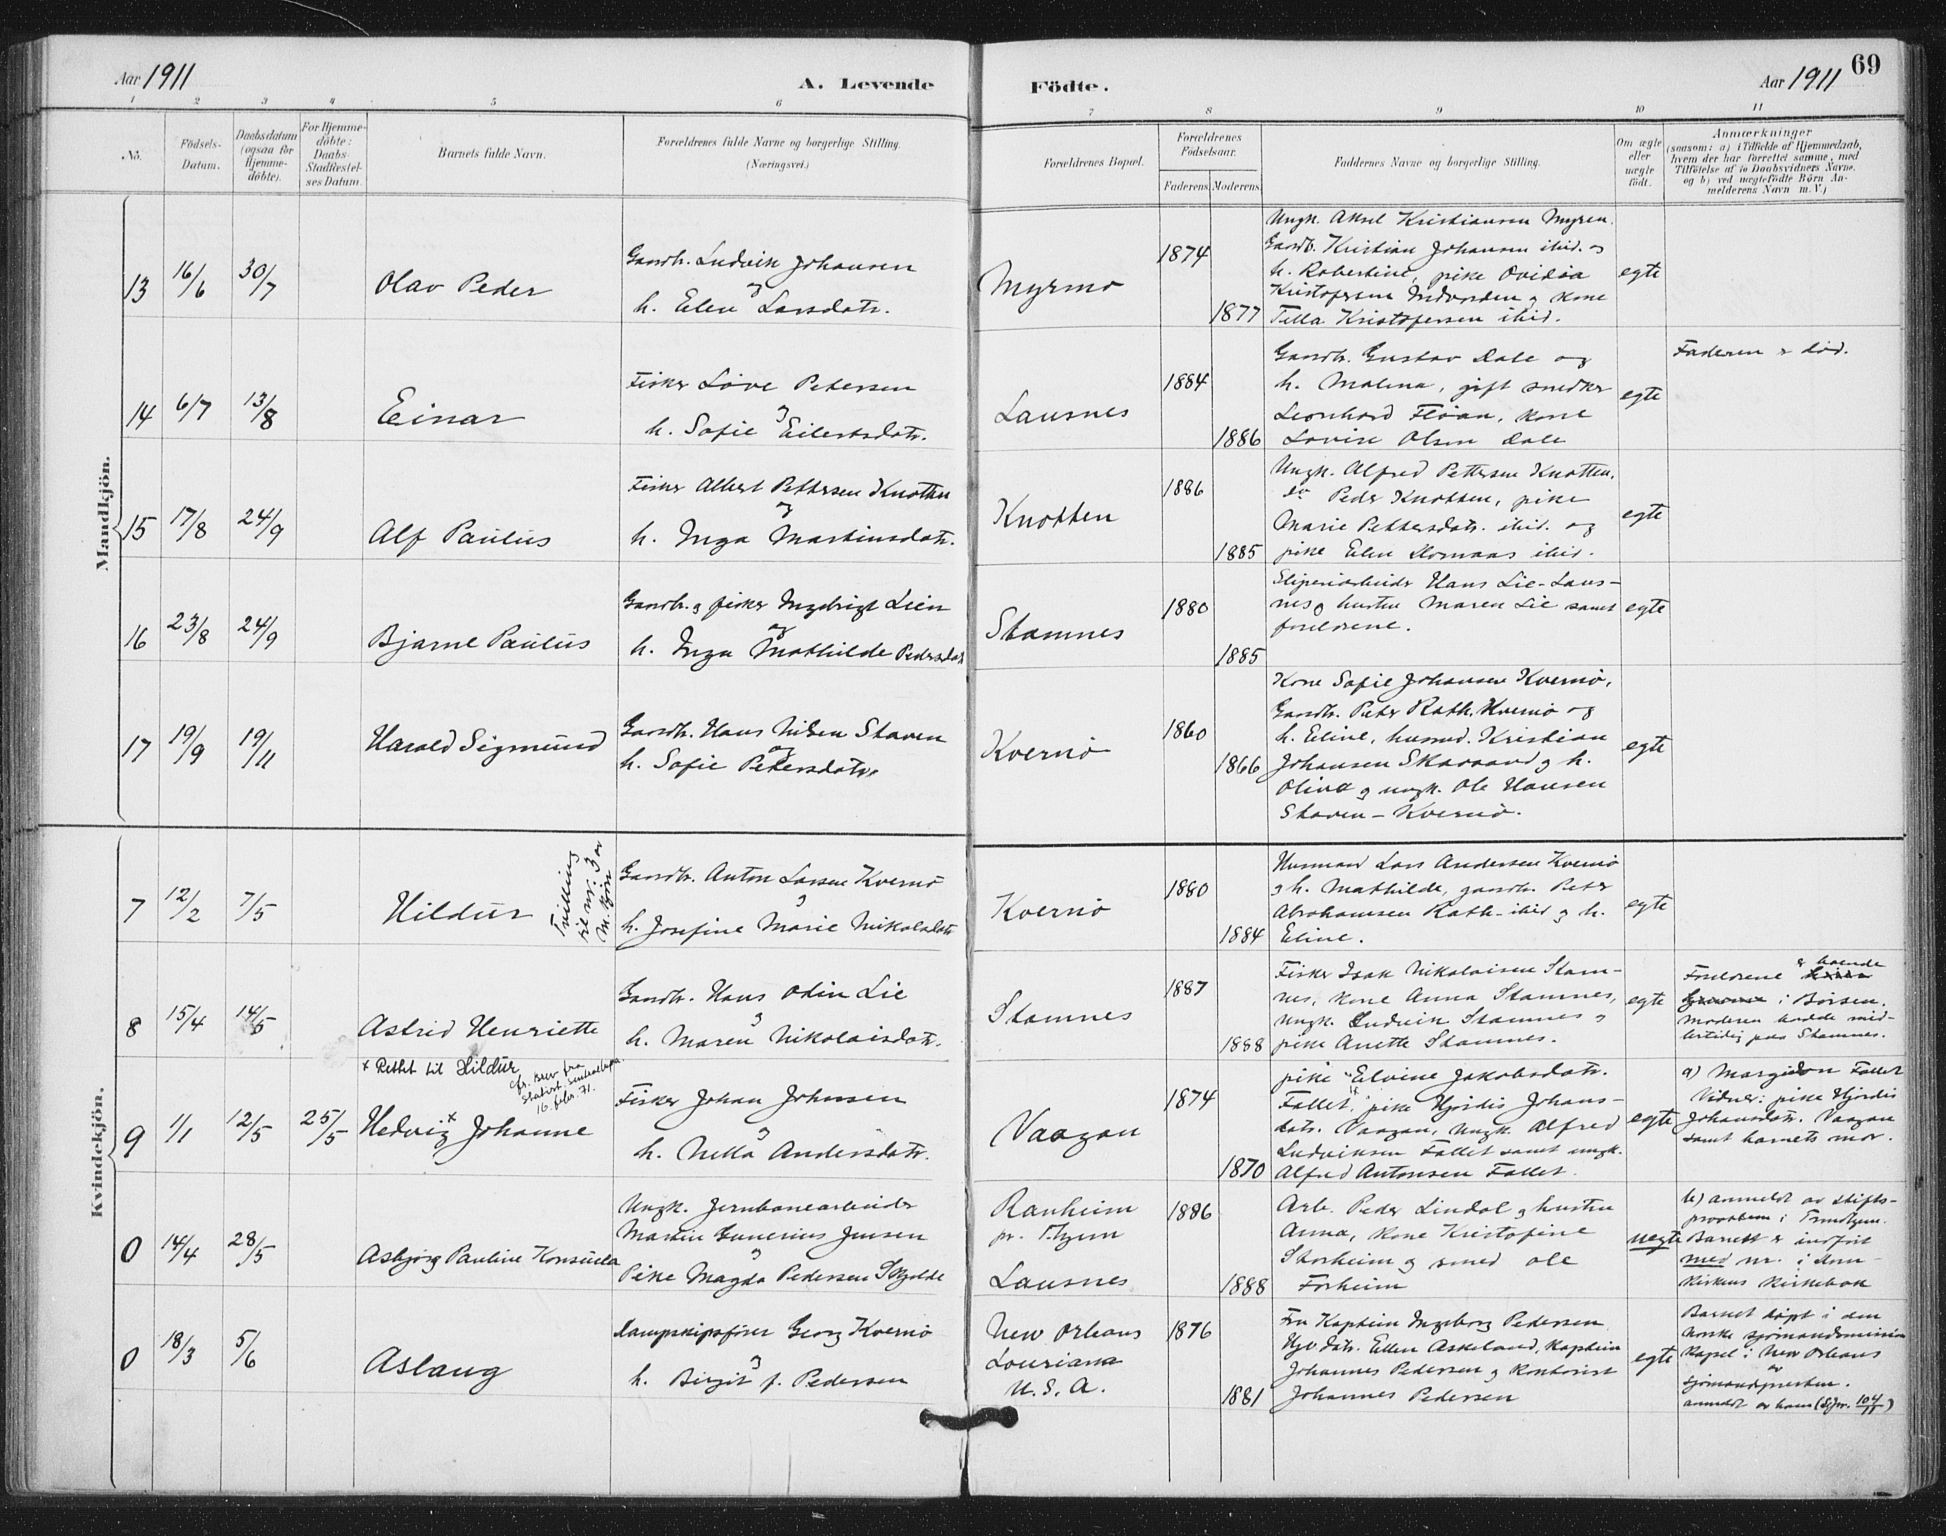 Aar 1911
A. Levende Födte.
Aar 1911
69
1 2 3 4 5 6 7 8 9 10 11
No.
Födsels-Datum.
Daabsdatum (ogsaa för Hjemme-döbte).
For Hjemme-döbte: Daabs-Stadfæstel-ses Datum.
Barnets fulde Navn.
Forældrenes fulde Navne og borgerlige Stilling.
(Næringsvei.)
Forældrenes Bopæl.
Forældrenes Födselsaar.
Faderens. Moderens.
Faddernes Navne og borgerlige Stilling.
Om ægte eller uægte födt.
Anmærkninger
(saasom: a) i Tilfælde af Hjemmedaab,
hvem der har forrettet samme, med
Tilföielse af to Daabsvidners Navne.
og b) ved uægtefödte Börn An-
melderens Navn m. V.)
Mandkjön.
13 16/6 30/7 Olav Peder
Gaardbr. Ludvik Johansen
og
h. Elen Larsdatr.
Myrmo
1874
1877
Ungk. Aksel Kristiansen Myren.
Gaardb. Kristian Johansen ibid. og
h. Robertine, pike Ovidia
Kristofersen Indvorden og kone
Tella Kristofersen ibid.
egte
14 6/7 13/8 Einar
Fisker Løve Petersen
og
h. Sofie Eilertsdatr.
Lausnes
1884
1886
Gaardb. Gustav Dale og
h. Malena, gift snedker
Leonhard Fløan, kone
Lovise Olsen Dale
egte
Faderen er død.
15 17/8 24/9 Alf Paulus
Fisker Albert Pettersen Knotten
og
h. Inga Martinsdatr.
Knotten
1886
1885
Ungk. Alfred Pettersen Knotten,
do Peder Knotten, pike
Marie Pettersdatr. ibid. og
pike Elen Skomaas ibid.
egte
16 23/8 24/9 Bjarne Paulus
Gaardbr. og fisker Ingebrigt Lien
og
h. Inga Mathilde Pedersdat
Stamnes
1880
1885
Sliperiarbeider Hans Lie-Laus-
nes og hustru Maren Lie samt
foreldrene.
egte
17 19/9 19/11 Harald Sigmund
Gaardb. Hans Nilsen Staven
og
h. Sofie Petersdatr.
Kvernø
1860
1866
Kone Sofie Johansen Kvernø,
Gaardb. Peter Rath. Kvernø og
h. Eline, husmd. Kristian
Johansen Skavsand og h.
Oliva og ungk. Ole Hansen
Staven – Kvernø.
egte
Kvindekjön.
7 12/2 7/5 Hildur
Tvilling
til nr. 3 av
m. kjøn
Gaardb. Anton Larsen Kvernø
og
h. Josefine Marie Nikolaidatr
Kvernø
1880
1884
Husmand Lars Andersen Kvernø
og h. Mathilde, gaardb. Peter
Abrahamsen Rath- ibid og h.
Eline.
egte
8 15/4 14/5 Astrid Henriette
Gaardb. Hans Odin Lie
og
h. Maren Nikolaisdatr.
Stamnes
1887
1888
Fisker Isak Nikolaisen Stam-
nes, kone Anna Stamnes,
ungk. Ludvik Stamnes og
pike Anette Stamnes.
egte
Foreldrene er boende
i Børsen.
Moderen bodde mid-
lertidig paa Stamnes.
x Rettet til Hildur
cfr. brev fra
Statist. Sentralbyrå
16. febr. 71.
9 1/1 12/5 25/5 Hedvig x Johanne
Fisker Johan Johnsen
og
h. Nella Andersdatr.
Vaagan
1874
1870
pike Elvine Jakobsdatr.
Fallet, pike Hjørdis Johans-
datr. Vaagan, ungk. Alfred
Ludviksen Fallet samt ungk.
Alfred Antonsen Fallet.
egte
a) Margidon Fallet
Vidner: pike Hjørdis
Johansdatr. Vaagan
samt barnets mor.
0 14/4 28/5 Asbjørg Pauline Konsuela
Ungk. Jernbanearbeider
Martin Gunerius Jensen
og
Pike Magda Pedersen Skjolde
Ranheim
pr. Thjem
Lausnes
1886
1888
Arb. Peder Lindal og hustru
Anna, kone Kristofine
Storheim og smed Ole
Forheim
uegte
b) anmeldt av stifts-
provsten i Trondhjem.
Barnet er indført
med nr. i Dom-
kirkens kirkebok
0 18/3 5/6 Aslaug
Dampskipsfører Georg Kvernø
og
h. Birgit f. Pedersen
New Orleans
Louriana
U. S. A.
1876
1881
Fru Kaptein Ingeborg Pedersen
Ellen Askeland, kaptein
Johannes Pedersen og kontorist
Johannes Pedersen
egte
Barnet døpt i den
norske sjømandsmission
kapel i New Orleans
av
sjømandspresten.
anmeldt av ham (Sfr. 104/11)